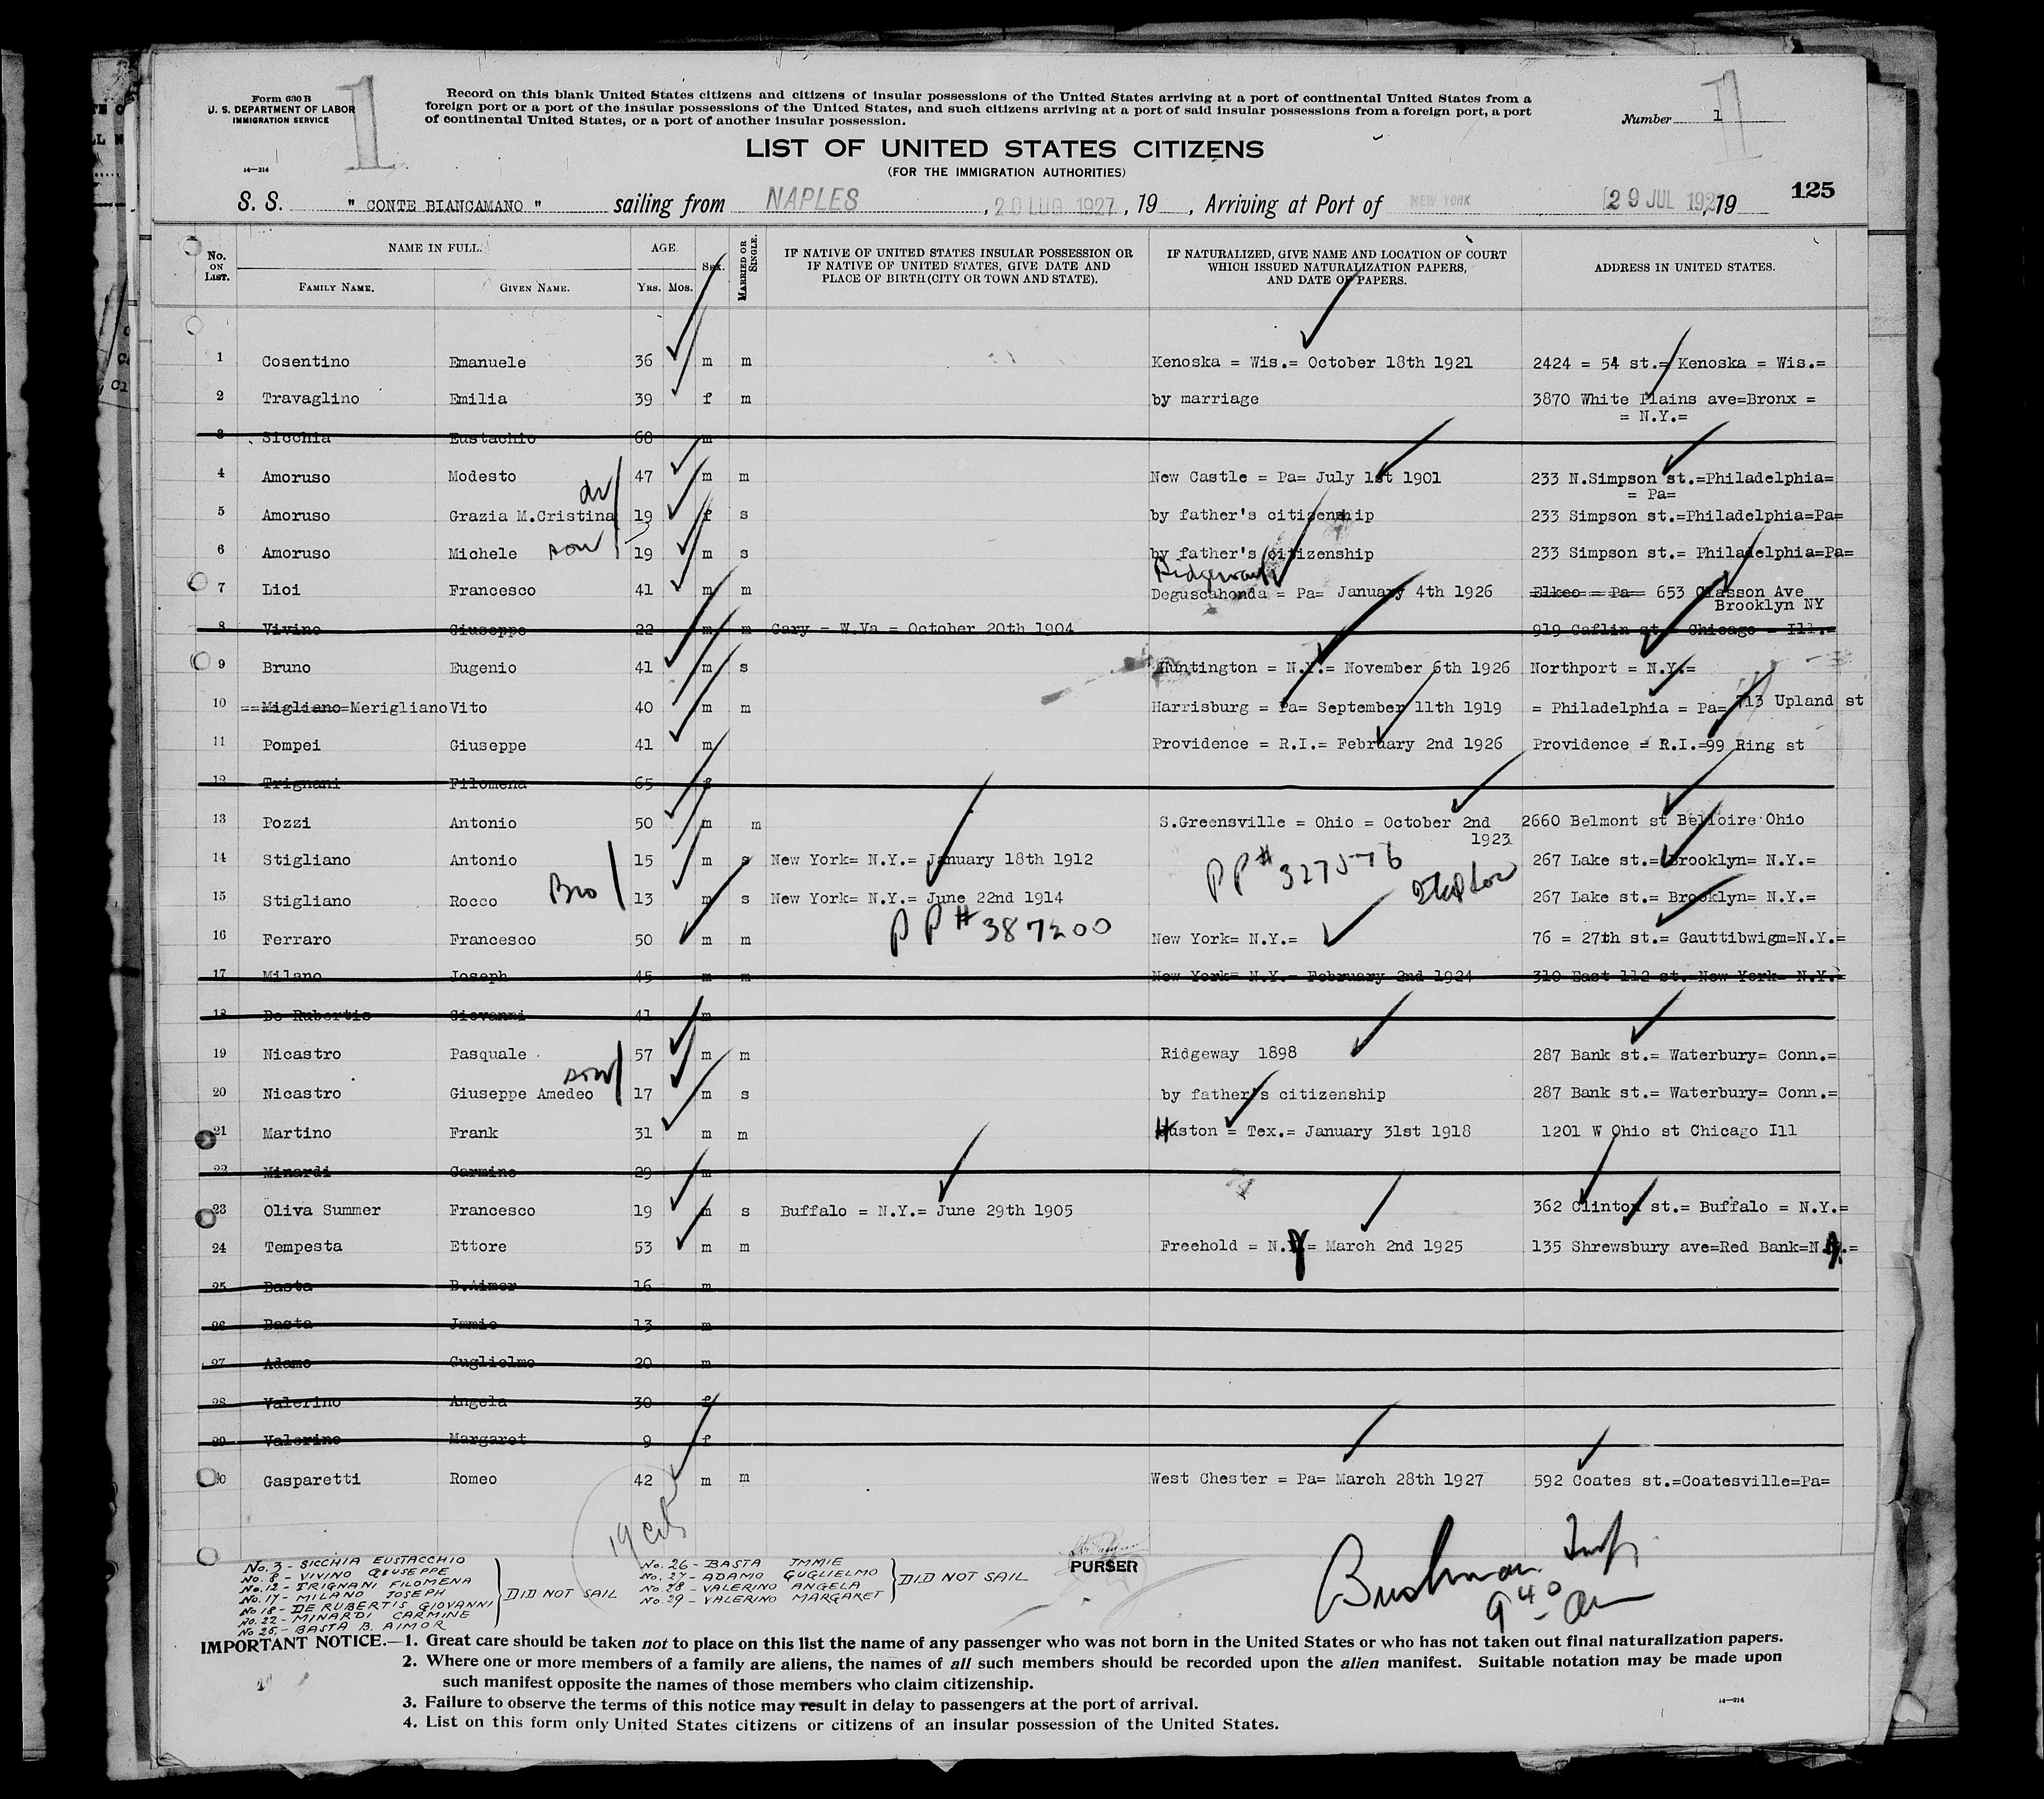 Form 630 B
U. S. DEPARTMENT OF LABOR
IMMIGRATION SERVICE
14—214
1
Record on this blank United States citizens and citizens of insular possessions of the United States arriving at a port of continental United States from a
foreign port or a port of the insular possessions of the United States, and such citizens arriving at a port of said insular possessions from a foreign port, a port
of continental United States, or a port of another insular possession.
Number 1
LIST OF UNITED STATES CITIZENS
(FOR THE IMMIGRATION AUTHORITIES)
125
S. S. " CONTE BIANCAMANO " sailing from NAPLES , 20 LUG 1927 , 19 , Arriving at Port of NEW YORK 29 JUL 1927 , 19
No. ON LIST. NAME IN FULL. FAMILY NAME. GIVEN NAME. AGE. YRS. MOS. SEX. MARRIED OR SINGLE. IF NATIVE OF UNITED STATES INSULAR POSSESSION OR IF NATIVE OF UNITED STATES, GIVE DATE AND PLACE OF BIRTH (CITY OR TOWN AND STATE). IF NATURALIZED, GIVE NAME AND LOCATION OF COURT WHICH ISSUED NATURALIZATION PAPERS, AND DATE OF PAPERS. ADDRESS IN UNITED STATES.
1 Cosentino Emanuele 36 m m Kenoska = Wis.= October 18th 1921 2424 = 54 st.= Kenoska = Wis.=
2 Travaglino Emilia 39 f m by marriage 3870 White Plains ave=Bronx =
= N.Y.=
3 Sicchia Eustachio 68 m
4 Amoruso Modesto 47 m m New Castle = Pa= July 1st 1901 233 N.Simpson st.=Philadelphia=
= Pa=
5 Amoruso Grazia M.Cristina 19 f s by father's citizenship 233 Simpson st.=Philadelphia=Pa=
6 Amoruso Michele son 19 m s by father's citizenship 233 Simpson st.= Philadelphia=Pa=
Ridgeway
7 Lioi Francesco 41 m m Deguscahonda = Pa= January 4th 1926 Elkeo = Pa= 653 Classon Ave
Brooklyn NY
8 Vivino Giuseppe 22 m m Gary = W.Va = October 20th 1904 919 Caflin st.= Chicago = Ill.=
9 Bruno Eugenio 41 m s Huntington = N.Y.= November 6th 1926 Northport = N.Y.=
10 ==Migliano=Merigliano Vito 40 m m Harrisburg = Pa= September 11th 1919 = Philadelphia = Pa= 713 Upland st
11 Pompei Giuseppe 41 m Providence = R.I.= February 2nd 1926 Providence = R.I.=99 Ring st
12 Trignani Filomena 65 f
13 Pozzi Antonio 50 m m S.Greensville = Ohio = October 2nd 2660 Belmont st Belloire Ohio
1923
14 Stigliano Antonio 15 m s New York= N.Y.= January 18th 1912 PP# 327576 267 Lake st.= Brooklyn= N.Y.=
15 Stigliano Rocco Bro 13 m s New York= N.Y.= June 22nd 1914 267 Lake st.= Brooklyn= N.Y.=
PP# 387200
16 Ferraro Francesco 50 m m New York= N.Y.= 76 = 27th st.= Gauttibwigm=N.Y.=
17 Milano Joseph 45 m m New York= N.Y.= February 2nd 1924 310 East 112 st.=New York= N.Y.=
18 De Rubertis Giovanni 41 m
19 Nicastro Pasquale 57 m m Ridgeway 1898 287 Bank st.= Waterbury= Conn.=
son
20 Nicastro Giuseppe Amedeo 17 m s by father's citizenship 287 Bank st.= Waterbury= Conn.=
21 Martino Frank 31 m m Huston = Tex.= January 31st 1918 1201 W Ohio st Chicago Ill
22 Minardi Carmine 29 m
23 Oliva Summer Francesco 19 m s Buffalo = N.Y.= June 29th 1905 362 Clinton st.= Buffalo = N.Y.=
24 Tempesta Ettore 53 m m Freehold = N.J.= March 2nd 1925 135 Shrewsbury ave=Red Bank=N.J.=
25 Basta B.Aimor 16 m
26 Basta Jmmie 13 m
27 Adamo Guglielmo 20 m
28 Valerino Angela 30 f
29 Valerino Margaret 9 f
30 Gasparetti Romeo 42 m m West Chester = Pa= March 28th 1927 592 Coates st.=Coatesville=Pa=
19 cits
No. 3 - SICCHIA EUSTACCHIO
No. 8 - VIVINO GIUSEPPE
No. 12 - TRIGNANI FILOMENA
No. 17 - MILANO JOSEPH
No 18 - DE RUBERTIS GIOVANNI
No. 22 - MINARDI CARMINE
No 25, - BASTA B. AIMOR
DID NOT SAIL
No. 26 - BASTA JMMIE
No. 27 - ADAMO GUGLIELMO
No. 28 - VALERINO ANGELA
No. 29 - VALERINO MARGARET
DID NOT SAIL
PURSER
Bushman Insp
9 40 am
IMPORTANT NOTICE.—1. Great care should be taken not to place on this list the name of any passenger who was not born in the United States or who has not taken out final naturalization papers.
2. Where one or more members of a family are aliens, the names of all such members should be recorded upon the alien manifest. Suitable notation may be made upon
such manifest opposite the names of those members who claim citizenship.
3. Failure to observe the terms of this notice may result in delay to passengers at the port of arrival.
4. List on this form only United States citizens or citizens of an insular possession of the United States.
14—214